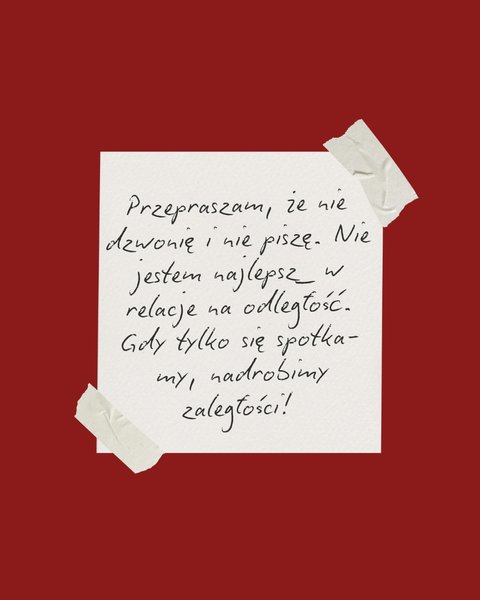 Przepraszam, że nie
dzwonię i nie piszę. Nie
jestem najlepsz_ w
relacje na odległość.
Gdy tylko się spotka-
my, nadrobimy
zaległości!